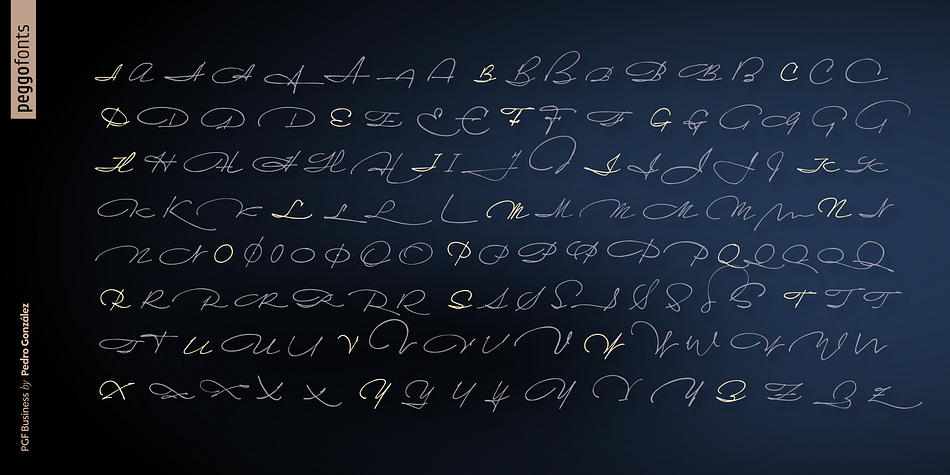 peggofonts
A A A A A A A A B B B B B B B C C C
D D D D D E E E E F F F G G G G G G
H H H H H H I I J J J J J J K K
K K K L L L L M M M M M M N N
N N O O O O O O P P P P P P Q Q Q Q Q
R R R R R R R S S S S S S S S T T T
T T U U U V V V V V W W W W W W
X X X X X Y Y Y Y Y Y Y Z Z Z Z
PGF Business by Pedro González